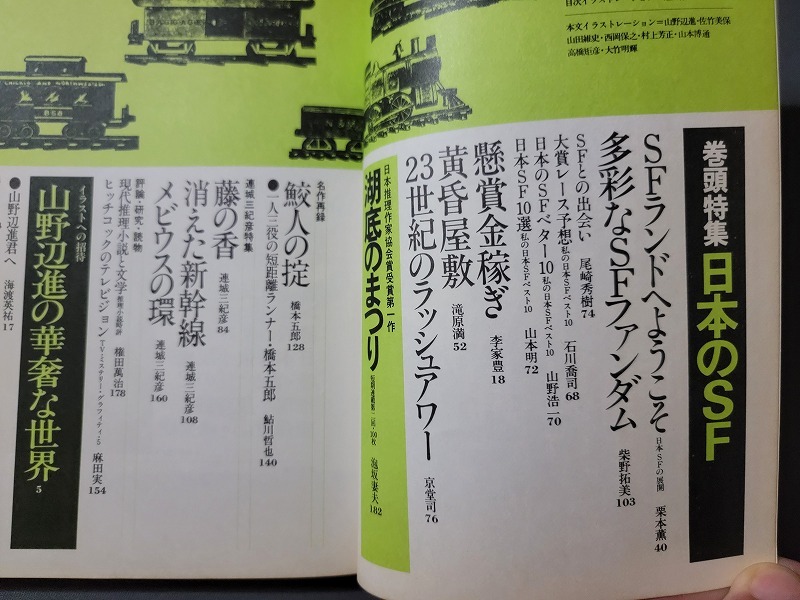 本文イラストレーション=山野辺進・佐竹美保
山田維史・西岡保之・村上芳正・山本博通
高橋矩彦・大竹明輝
巻頭特集 日本のSF
SFランドへようこそ 日本SFの展開 栗本薫 40
多彩なSFファンダム 柴野拓美 103
SFとの出会い 尾崎秀樹 74
大賞レース予想 私の日本SFベスト10 石川喬司 68
日本のSFベター10 私の日本SFベスト10 山野浩一 70
日本SF10選 私の日本SFベスト10 山本明 72
懸賞金稼ぎ 李家豊 18
黄昏屋敷 滝原満 52
23世紀のラッシュアワー 京堂司 76
日本推理作家協会賞受賞第一作
湖底のまつり 泡坂妻夫 182
名作再録
鮫人の掟 橋本五郎 128
●一人三役の短距離ランナー・橋本五郎 鮎川哲也 140
連城三紀彦特集
藤の香 連城三紀彦 84
消えた新幹線 連城三紀彦 108
メビウスの環 連城三紀彦 160
評論・研究・読物
現代推理小説と文学 推理小説時評 権田萬治 178
ヒッチコックのテレビジョン TVミステリー・グラフィティ・5 麻田実 154
イラストへの招待
山野辺進の華奢な世界 5
●山野辺進君へ 海渡英祐 17
CHICAGO AND NORTHWESTERN